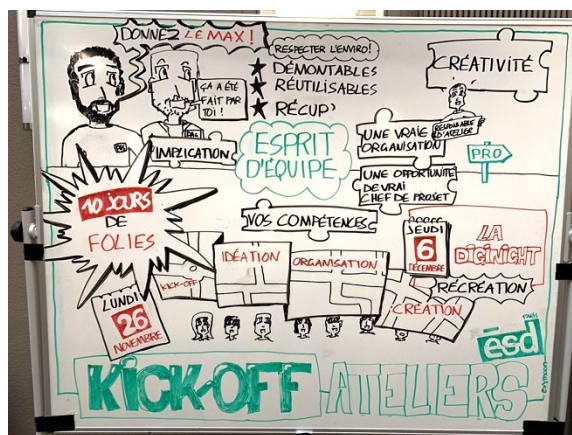 DONNEZ LE MAX !
RESPECTER L'ENVIRO!
★ DÉMONTABLES
★ RÉUTILISABLES
★ RÉCUP'
CRÉATIVITÉ
ÇA A ÉTÉ
FAIT PAR
TOI !
IMPLICATION
ESPRIT
D'ÉQUIPE
UNE VRAIE
ORGANISATION
RESPONSABLE
D'ATELIER
PRO
UNE OPPORTUNITÉ
DE VRAI
CHEF DE PROJET
10 JOURS
DE
FOLIES
VOS COMPÉTENCES
JEUDI
6
DÉCEMBRE
LA
DIGINIGHT
KICK-OFF
IDÉATION
ORGANISATION
CRÉATION
RÉCRÉATION
LUNDI
26
NOVEMBRE
PARIS
ésd
KICK-OFF ATELIERS